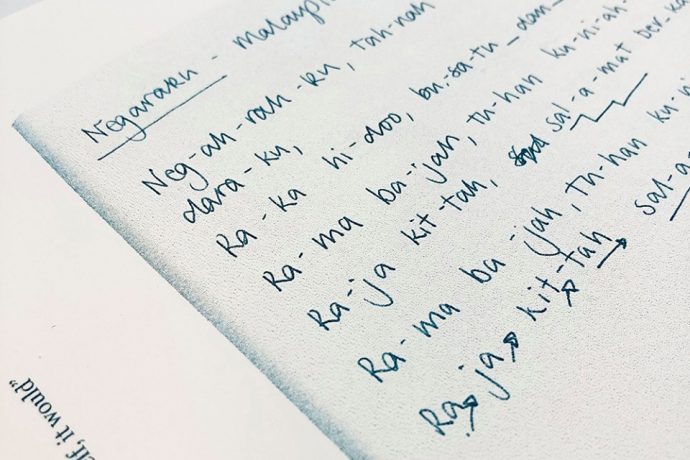 Negaraku - Malaysi
Neg-ah-rah-ku, tah-nah
dara-ku,
Ra-ka hi-doo, bu-sa-tu_dan_
Ra-ma ba-jah, tu-han ku-ni-ah-
Ra-ja kit-tah, sal-a-mat ber-ka
Ra-ma ba-jah, tu-han ku-ni
Ra-ja kit-tah sal-a-
elf, it would"